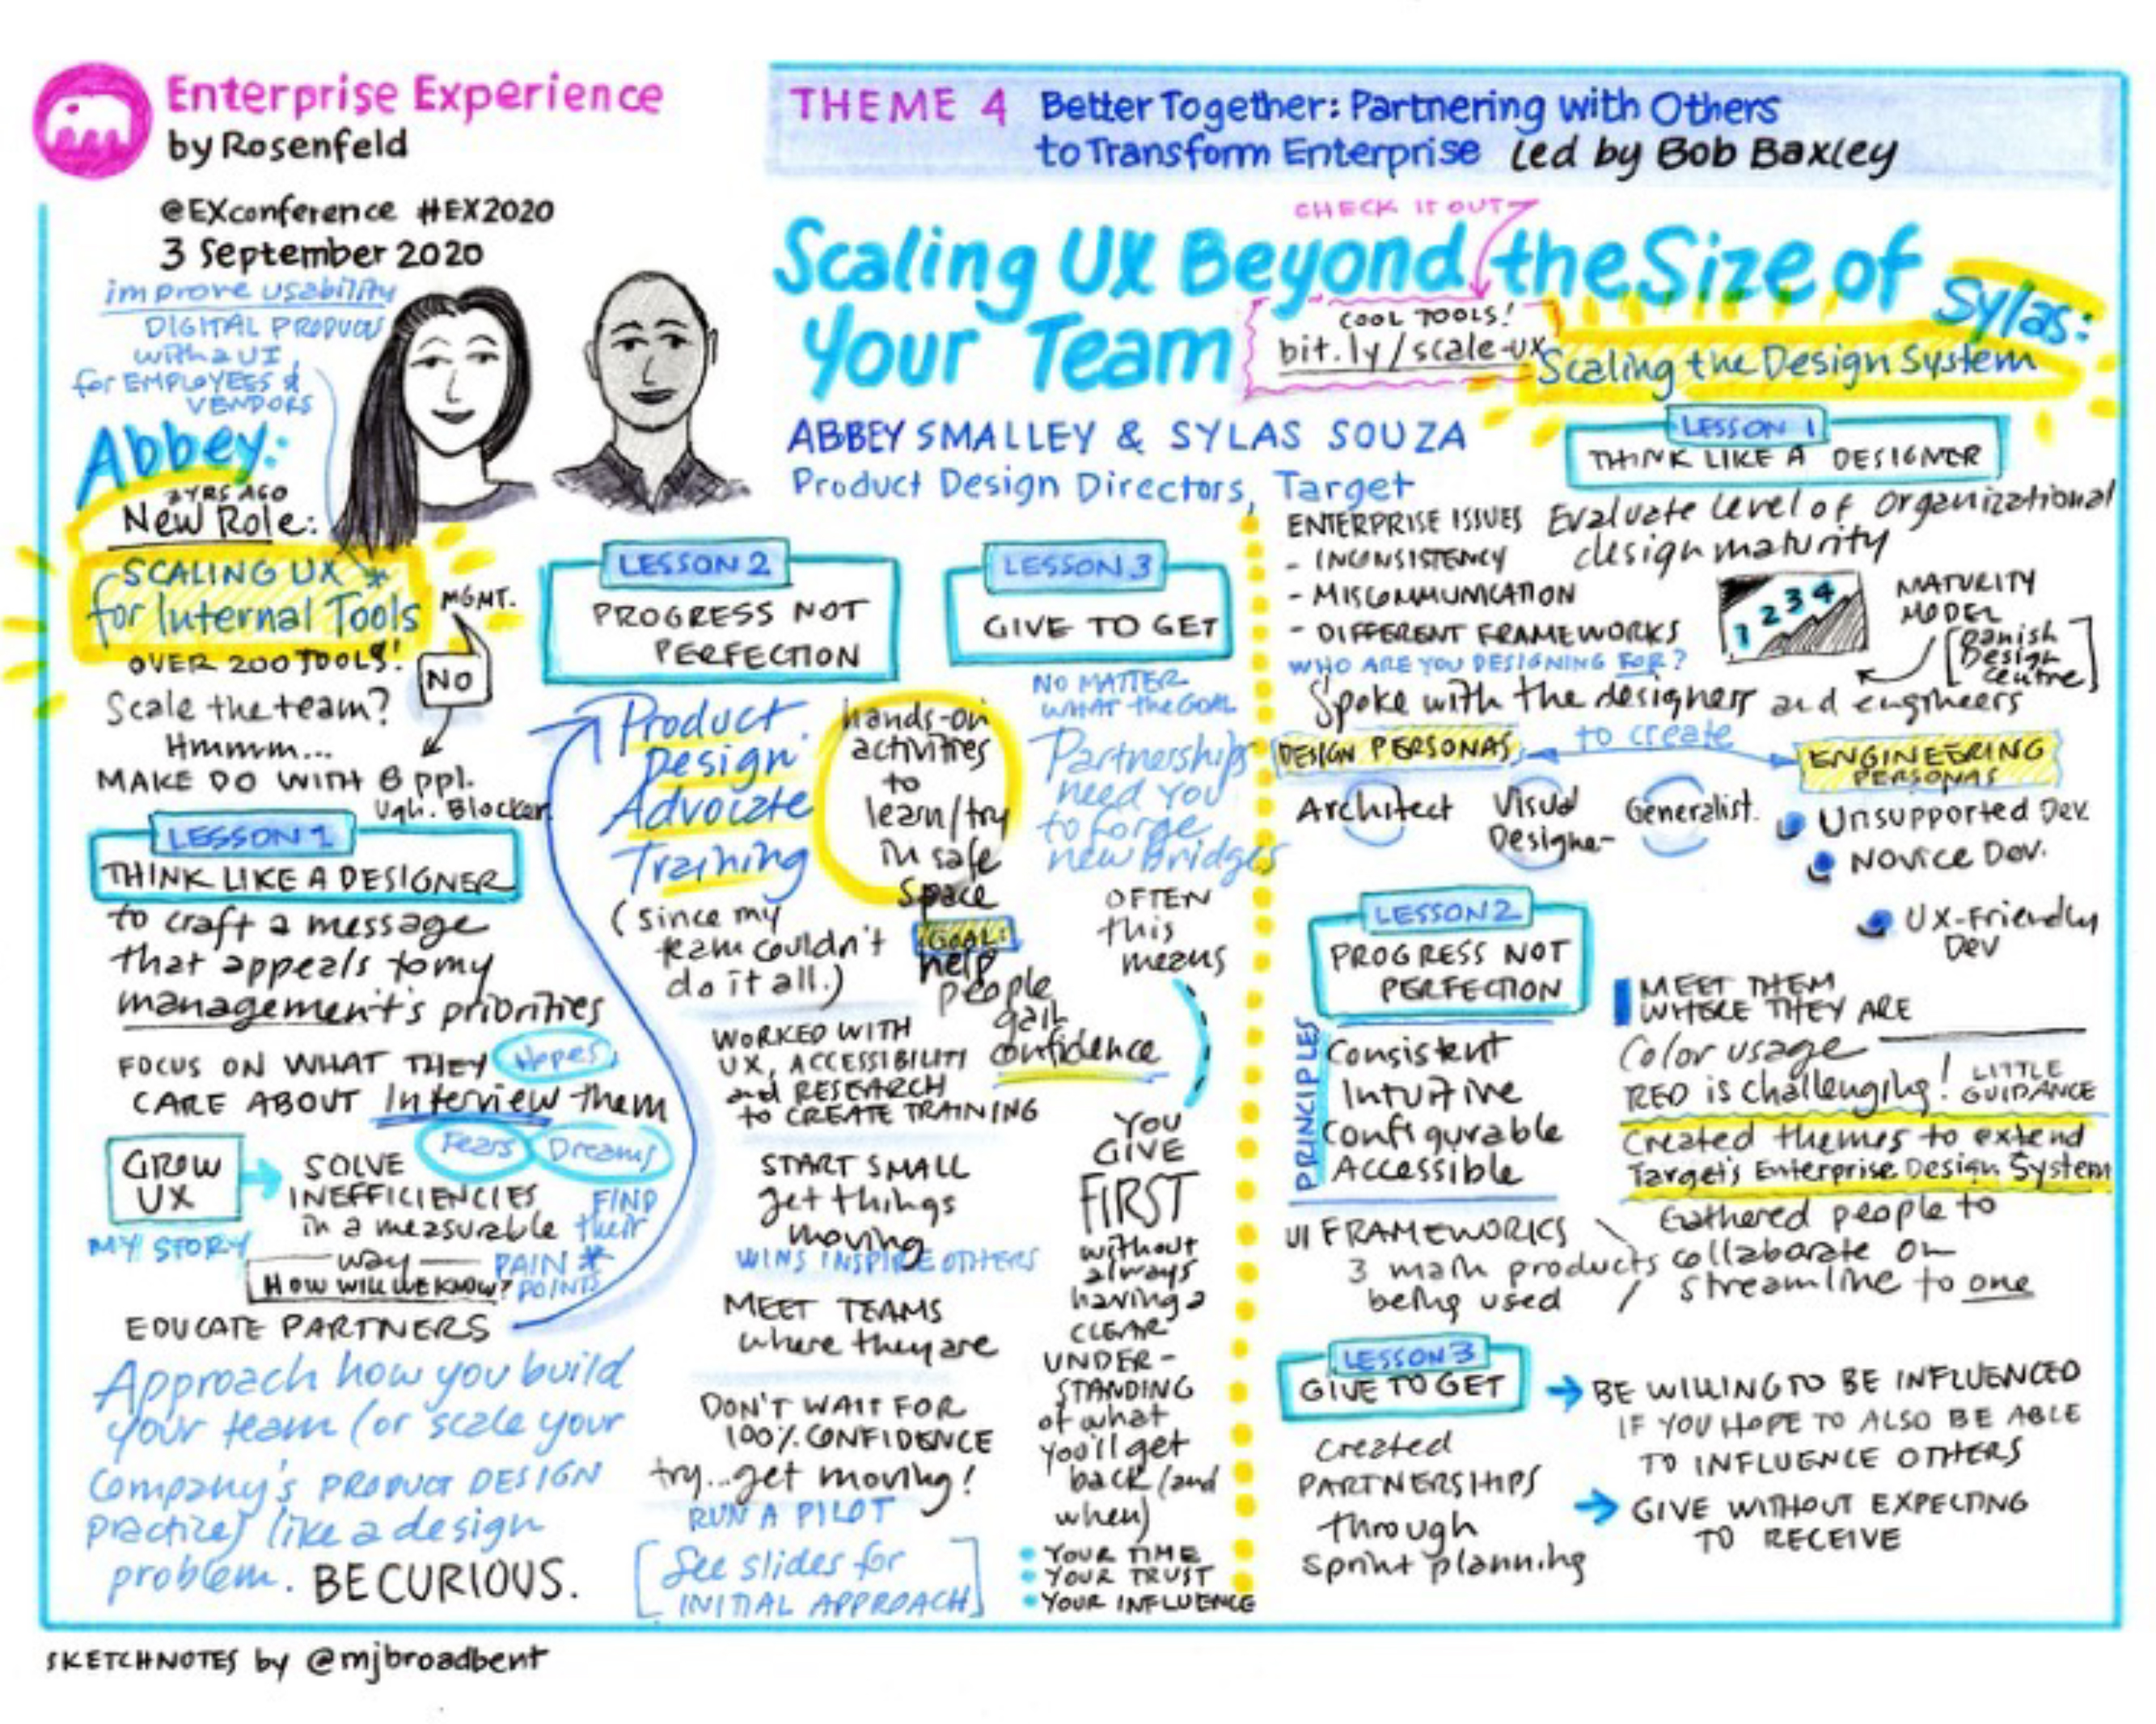 Enterprise Experience
by Rosenfeld
@EXconference #EX2020
3 September 2020
THEME 4 Better Together: Partnering with Others
to Transform Enterprise Led by Bob Baxley
CHECK IT OUT
Scaling UX Beyond the Size of
Your Team
COOL TOOLS!
bit.ly/scale-ux
ABBEY SMALLEY & SYLAS SOUZA
Product Design Directors, Target
improve usability
DIGITAL PRODUCTS
with a UI
for EMPLOYEES &
VENDORS
Abbey:
2 YRS AGO
New Role:
SCALING UX *
for Internal Tools
OVER 200 TOOLS!
MGMT.
NO
Scale the team?
Hmmm...
MAKE DO WITH 8 ppl.
Ugh. Blocker
LESSON 1
THINK LIKE A DESIGNER
to craft a message
that appeals to my
management's priorities
FOCUS ON WHAT THEY
CARE ABOUT Interview them
Hopes,
Fears
Dreams
GROW
UX
MY STORY
SOLVE
INEFFICIENCIES
in a measurable
way
HOW WILL WE KNOW?
FIND
their
PAIN *
POINTS
EDUCATE PARTNERS
Approach how you build
your team (or scale your
Company's PRODUCT DESIGN
practice) like a design
problem. BE CURIOUS.
LESSON 2
PROGRESS NOT
PERFECTION
Product
Design
Advocate
Training
(since my
team couldn't
do it all.)
hands-on
activities
to
learn/try
in safe
space
GOAL
help
people
gain
confidence
WORKED WITH
UX, ACCESSIBILITY
and RESEARCH
to CREATE TRAINING
START SMALL
get things
moving
WINS INSPIRE OTHERS
MEET TEAMS
where they are
DON'T WAIT FOR
100% CONFIDENCE
try...get moving!
RUN A PILOT
[See slides for
INITIAL APPROACH]
LESSON 3
GIVE TO GET
NO MATTER
WHAT the GOAL
Partnerships
need you
to forge
new Bridges
OFTEN
this
means
YOU
GIVE
FIRST
without
always
having a
CLEAR
UNDER-
STANDING
of what
you'll get
back (and
when)
• YOUR TIME
• YOUR TRUST
• YOUR INFLUENCE
Sylas:
Scaling the Design System
LESSON 1
THINK LIKE A DESIGNER
Evaluate level of organizational
design maturity
ENTERPRISE ISSUES
- INCONSISTENCY
- MISCOMMUNICATION
- DIFFERENT FRAMEWORKS
1 2 3 4
MATURITY
MODEL
[Danish
Design
Centre]
WHO ARE YOU DESIGNING FOR?
Spoke with the designers and engineers
to create
DESIGN PERSONAS
Architect
Visual
Designer
Generalist.
ENGINEERING
PERSONAS
Unsupported Dev
Novice Dev.
UX-Friendly
Dev
LESSON 2
PROGRESS NOT
PERFECTION
PRINCIPLES
Consistent
Intuitive
Configurable
Accessible
MEET THEM
WHERE THEY ARE
Color usage
RED is challenging!
LITTLE
GUIDANCE
Created themes to extend
Target's Enterprise Design System
UI FRAMEWORKS
3 main products
being used
Gathered people to
collaborate on
streamline to one
LESSON 3
GIVE TO GET
created
PARTNERSHIPS
through
sprint planning
BE WILLING TO BE INFLUENCED
IF YOU HOPE TO ALSO BE ABLE
TO INFLUENCE OTHERS
GIVE WITHOUT EXPECTING
TO RECEIVE
SKETCHNOTES by @mjbroadbent